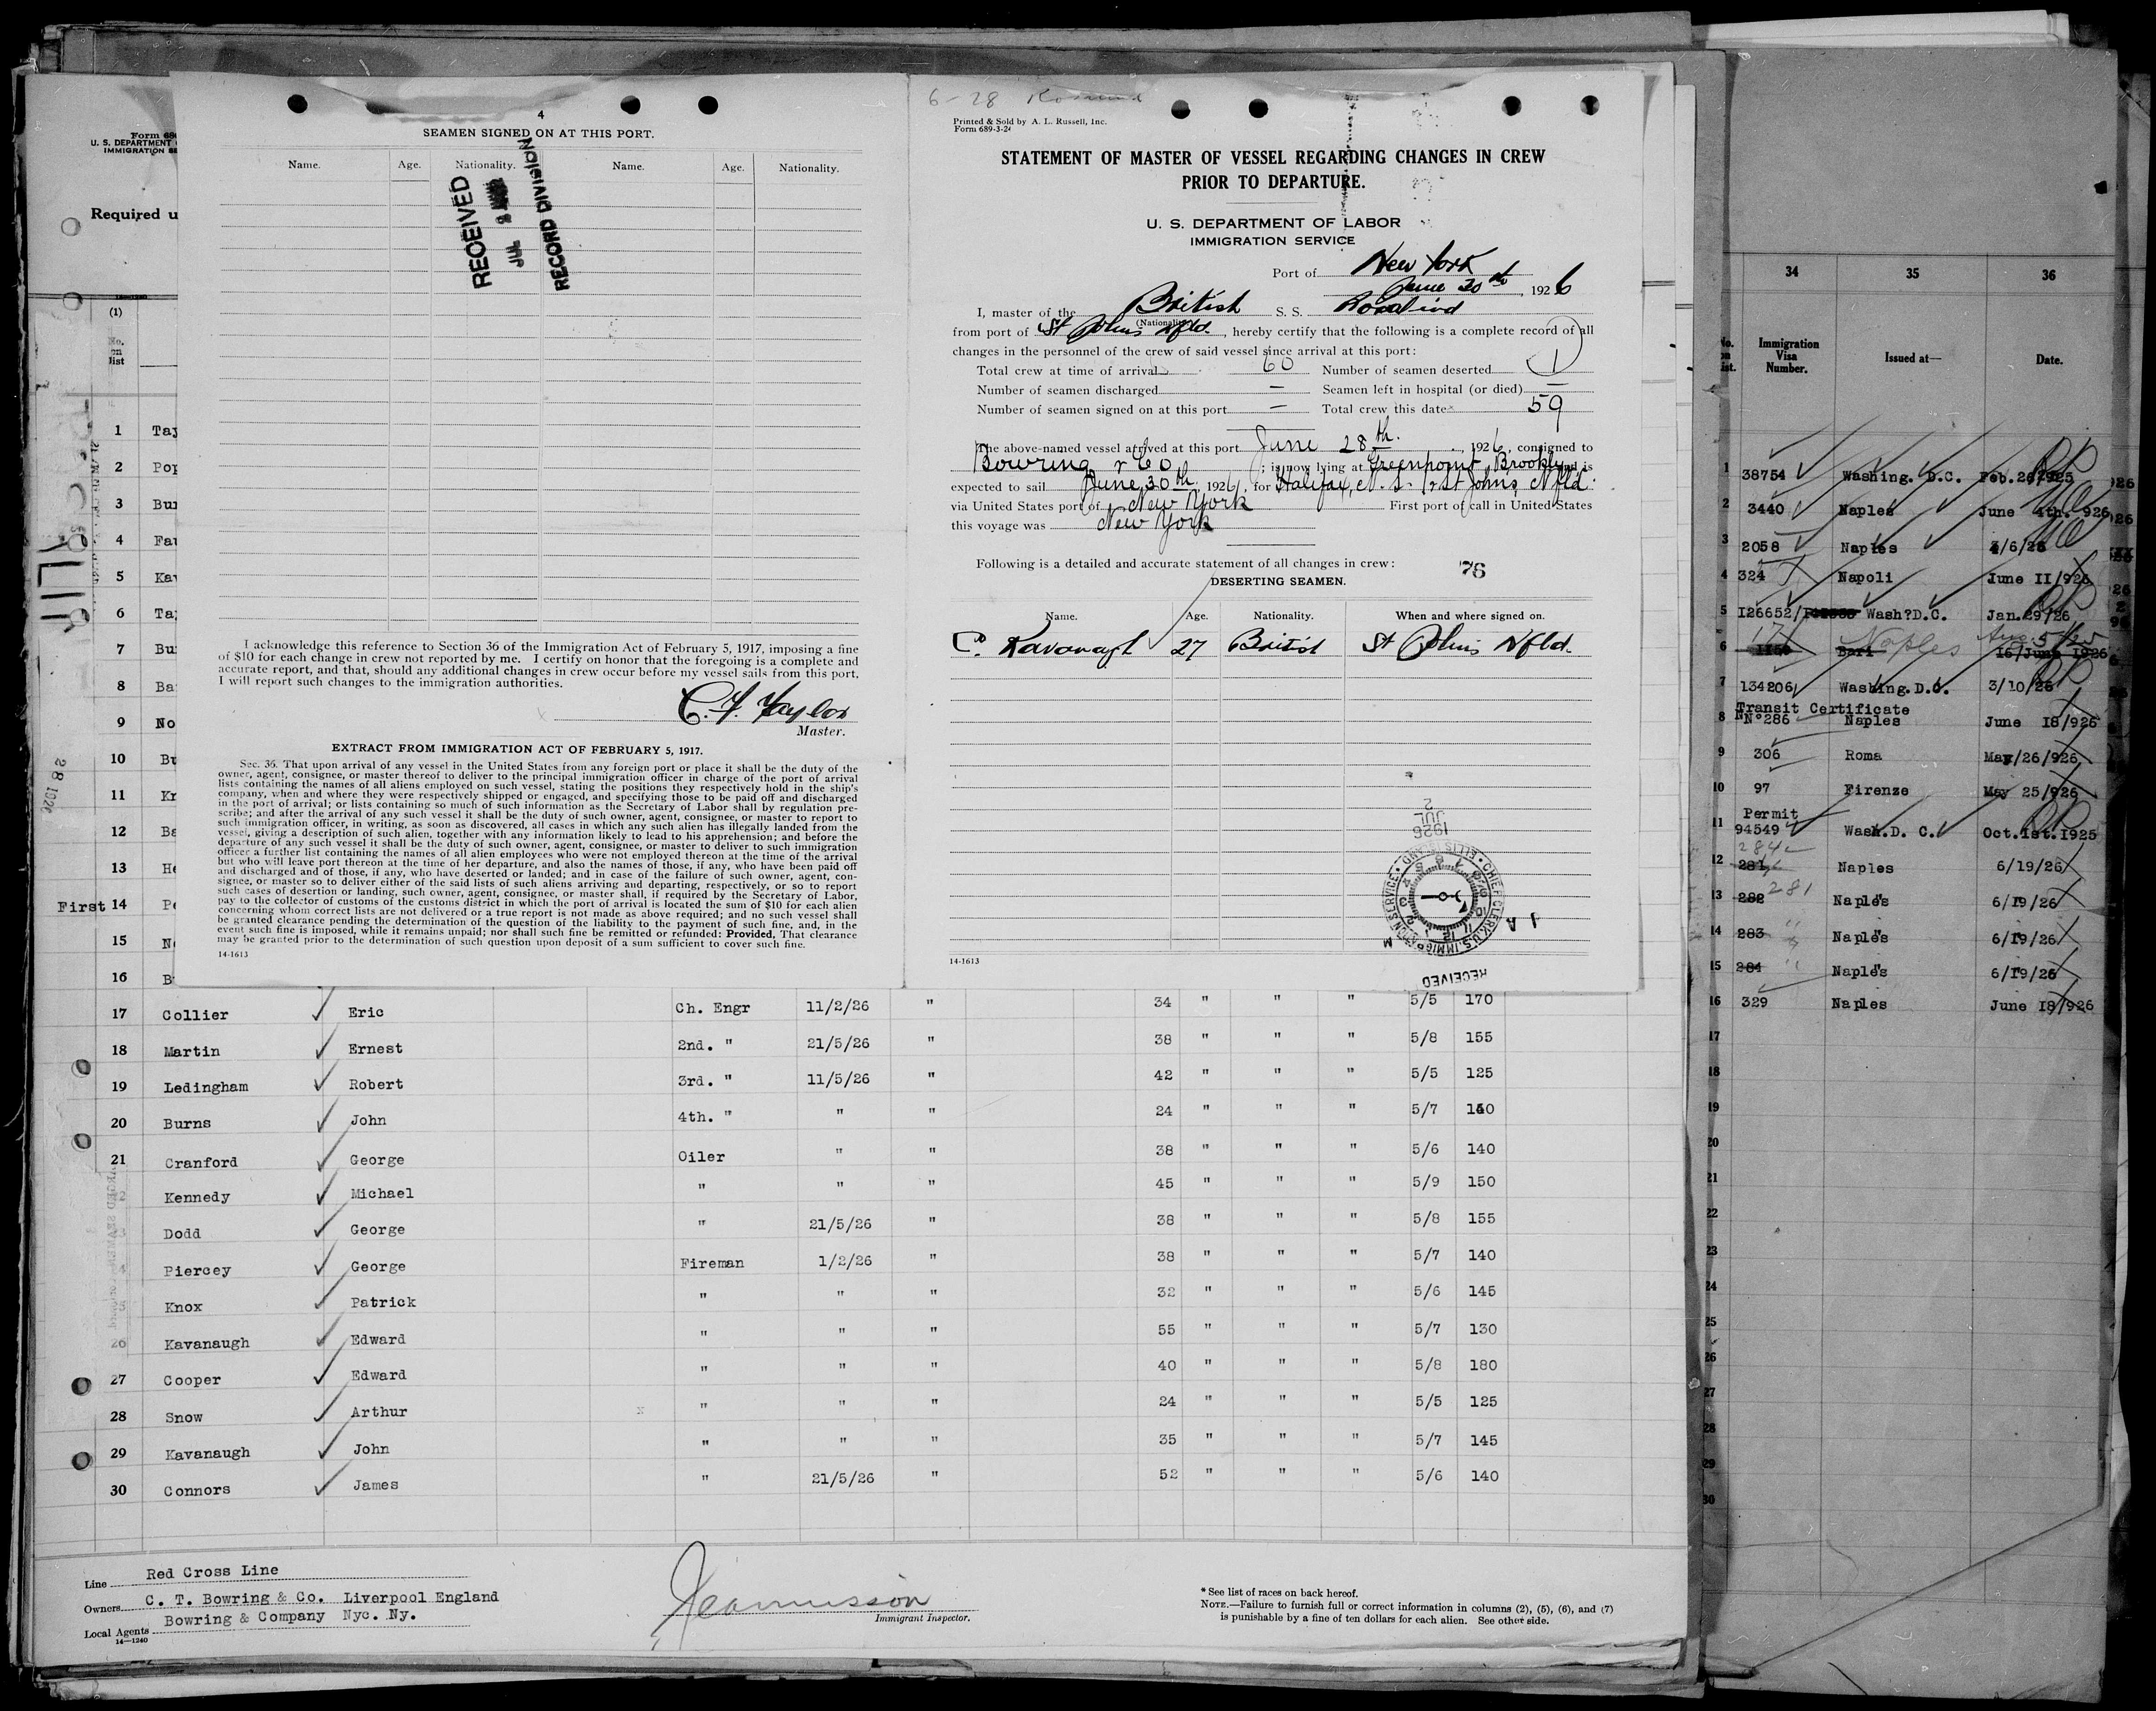 4
SEAMEN SIGNED ON AT THIS PORT.
Name. Age. Nationality. Name. Age. Nationality.
RECEIVED
JUL
RECORD DIVISION
I acknowledge this reference to Section 36 of the Immigration Act of February 5, 1917, imposing a fine
of $10 for each change in crew not reported by me. I certify on honor that the foregoing is a complete and
accurate report, and that, should any additional changes in crew occur before my vessel sails from this port,
I will report such changes to the immigration authorities.
C. F. Taylor
Master.
EXTRACT FROM IMMIGRATION ACT OF FEBRUARY 5, 1917.
Sec. 36. That upon arrival of any vessel in the United States from any foreign port or place it shall be the duty of the
owner, agent, consignee, or master thereof to deliver to the principal immigration officer in charge of the port of arrival
lists containing the names of all aliens employed on such vessel, stating the positions they respectively hold in the ship's
company, when and where they were respectively shipped or engaged, and specifying those to be paid off and discharged
in the port of arrival; or lists containing so much of such information as the Secretary of Labor shall by regulation pre-
scribe; and after the arrival of any such vessel it shall be the duty of such owner, agent, consignee, or master to report to
such immigration officer, in writing, as soon as discovered, all cases in which any such alien has illegally landed from the
vessel, giving a description of such alien, together with any information likely to lead to his apprehension; and before the
departure of any such vessel it shall be the duty of such owner, agent, consignee, or master to deliver to such immigration
officer a further list containing the names of all alien employees who were not employed thereon at the time of the arrival
but who will leave port thereon at the time of her departure, and also the names of those, if any, who have been paid off
and discharged and of those, if any, who have deserted or landed; and in case of the failure of such owner, agent, con-
signee, or master so to deliver either of the said lists of such aliens arriving and departing, respectively, or so to report
such cases of desertion or landing, such owner, agent, consignee, or master shall, if required by the Secretary of Labor,
pay to the collector of customs of the customs district in which the port of arrival is located the sum of $10 for each alien
concerning whom correct lists are not delivered or a true report is not made as above required; and no such vessel shall
be granted clearance pending the determination of the question of the liability to the payment of such fine, and, in the
event such fine is imposed, while it remains unpaid; nor shall such fine be remitted or refunded: Provided, That clearance
may be granted prior to the determination of such question upon deposit of a sum sufficient to cover such fine.
14-1613
6-28
Printed & Sold by A. L. Russell, Inc.
Form 689-3-24
STATEMENT OF MASTER OF VESSEL REGARDING CHANGES IN CREW
PRIOR TO DEPARTURE.
U. S. DEPARTMENT OF LABOR
IMMIGRATION SERVICE
Port of New York
June 30th, 1926
I, master of the British S. S. Rosalind
(Nationality)
from port of St Johns Nfld., hereby certify that the following is a complete record of all
changes in the personnel of the crew of said vessel since arrival at this port:
Total crew at time of arrival 60 Number of seamen deserted 1
Number of seamen discharged — Seamen left in hospital (or died) —
Number of seamen signed on at this port — Total crew this date 59
The above-named vessel arrived at this port June 28th. 1926, consigned to
Bowring & Co; is now lying at Greenpoint, Brooklyn and is
expected to sail June 30th, 1926, for Halifax, N. S. & St Johns, Nfld.
via United States port of New York First port of call in United States
this voyage was New York
Following is a detailed and accurate statement of all changes in crew: 76
DESERTING SEAMEN.
Name. Age. Nationality. When and where signed on.
C. Kavanagh 27 British St Johns Nfld.
1926
JUL
2
CHIEF CLERK U.S. IMMIGRATION SERVICE ELLIS ISLAND
RECEIVED
14-1613
U. S. DEPARTMENT
Required u
(1)
No. on list
1 Tay
2 Pop
3 Bur
4 Fau
5 Kav
6 Tay
7
8
9 No
10
11 Kr
12 Ba
13 He
First 14 Pe
15
16 B
17 Collier Eric Ch. Engr 11/2/26 " 34 " " " 5/5 170
18 Martin Ernest 2nd. " 21/5/26 " 38 " " " 5/8 155
19 Ledingham Robert 3rd. " 11/5/26 " 42 " " " 5/5 125
20 Burns John 4th. " " " 24 " " " 5/7
21 Cranford George Oiler " " 38 " " " 5/6 140
2 Kennedy Michael " " " 45 " " " 5/9 150
3 Dodd George " 21/5/26 " 38 " " " 5/8 155
4 Piercey George Fireman 1/2/26 " 38 " " " 5/7 140
5 Knox Patrick " " " 32 " " " 5/6 145
26 Kavanaugh Edward " " " 55 " " " 5/7 130
27 Cooper Edward " " " 40 " " " 5/8 180
28 Snow Arthur " " " 24 " " " 5/5 125
29 Kavanaugh John " " " 35 " " " 5/7 145
30 Connors James " 21/5/26 " 52 " " " 5/6 140
Line Red Cross Line
Owners C. T. Bowring & Co. Liverpool England
Local Agents Bowring & Company Nyc. Ny.
14—1240
Immigrant Inspector.
* See list of races on back hereof.
NOTE.—Failure to furnish full or correct information in columns (2), (5), (6), and (7)
is punishable by a fine of ten dollars for each alien. See other side.
34 35 36
Immigration Visa Number. Issued at— Date.
1 38754 Washing. D.C. Feb.
2 3440 Naples June 4th. 926
3 2058 Naples
4 324 Napoli June II/926
5 I26652/ Wash?D.C. Jan.29/26
6 Bari Naples 16/June 1926
7 134206 Washing.D.C. 3/10/26
Transit Certificate
8 N°286 Naples June 18/926
9 306 Roma May/26/926
10 97 Firenze May 25/926
Permit
11 94549 Wash.D. C. Oct.1st.1925
2842
12 281 Naples 6/19/26
13 282 281 Naples 6/19/26
14 283 " Naples 6/19/26
15 284 " Naples 6/19/26
16 329 Naples June 18/926
17
18
19
20
21
22
23
24
25
26
27
28
29
30